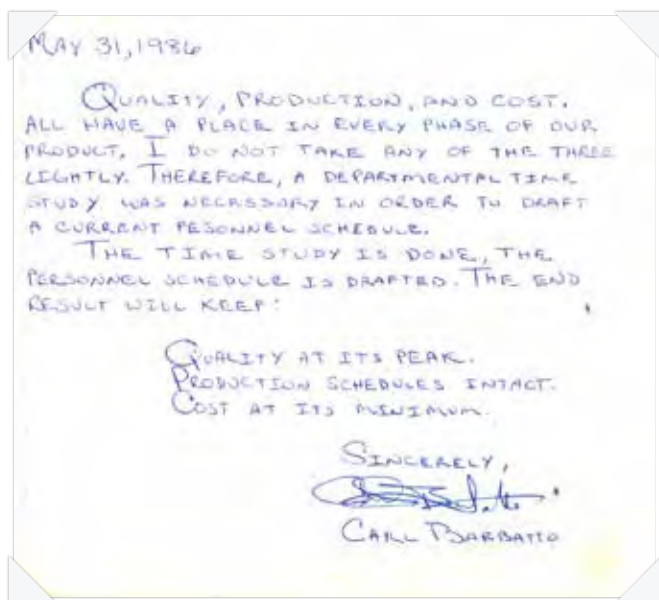 MAY 31, 1986
QUALITY, PRODUCTION, AND COST.
ALL HAVE A PLACE IN EVERY PHASE OF OUR
PRODUCT. I DO NOT TAKE ANY OF THE THREE
LIGHTLY. THEREFORE, A DEPARTMENTAL TIME
STUDY WAS NECASSORY IN ORDER TO DRAFT
A CURRENT PESONNEL SCHEDULE.
THE TIME STUDY IS DONE, THE
PERSONNEL SCHEDULE IS DRAFTED. THE END
RESULT WILL KEEP:
QUALITY AT ITS PEAK.
PRODUCTION SCHEDULES INTACT.
COST AT ITS MINIMUM.
SINCERELY,
CARL BARBATTO